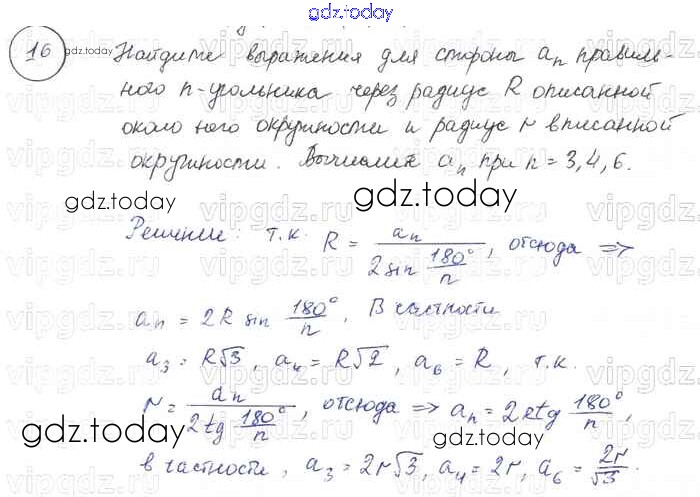 gdz.today
16 gdz.today Найдите выражения для стороны aₙ правиль-
ного n-угольника через радиус R описанной
около него окружности и радиус r вписанной
окружности. Вычислите aₙ при n = 3, 4, 6.
gdz.today gdz.today
Решение: т.к. R = aₙ / (2 sin 180°/n), отсюда ⇒
aₙ = 2R sin 180°/n. В частности
a₃ = R√3, a₄ = R√2, a₆ = R, т.к.
r = aₙ / (2 tg 180°/n), отсюда ⇒ aₙ = 2r tg 180°/n,
gdz.today gdz.today
в частности, a₃ = 2r√3, a₄ = 2r, a₆ = 2r/√3.
vipgdz.ru